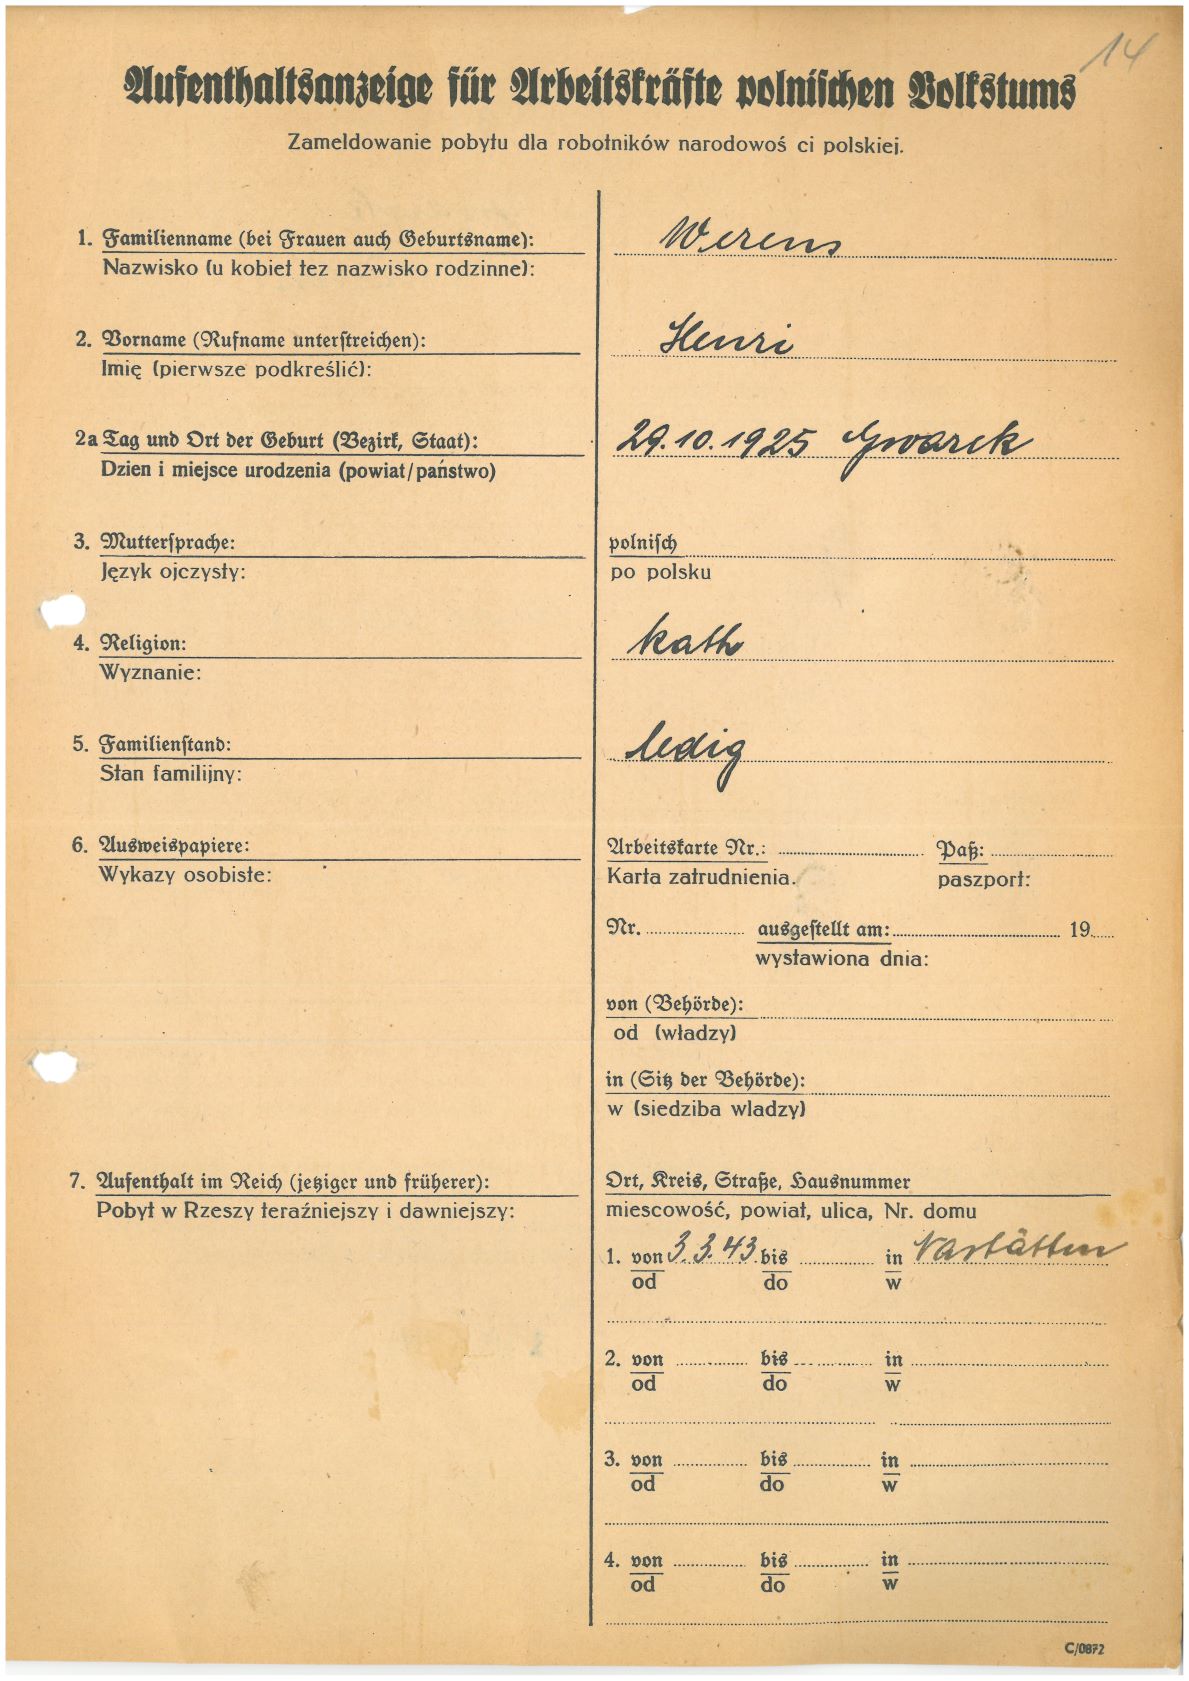 14
Aufenthaltsanzeige für Arbeitskräfte polnischen Volkstums
Zameldowanie pobytu dla robotników narodowoś ci polskiej.
1. Familienname (bei Frauen auch Geburtsname): Werens
Nazwisko (u kobiet tez nazwisko rodzinne):
2. Vorname (Rufname unterstreichen): Henri
Imię (pierwsze podkreślić):
2a Tag und Ort der Geburt (Bezirk, Staat): 29.10.1925 Gwarek
Dzien i miejsce urodzenia (powiat/państwo)
3. Muttersprache: polnisch
Język ojczysty: po polsku
4. Religion: kath
Wyznanie:
5. Familienstand: ledig
Stan familijny:
6. Ausweispapiere: Arbeitskarte Nr.: Paß:
Wykazy osobiste: Karta zatrudnienia. paszport:
Nr. ausgestellt am: 19
wystawiona dnia:
von (Behörde):
od (władzy)
in (Sitz der Behörde):
w (siedziba wladzy)
7. Aufenthalt im Reich (jetziger und früherer): Ort, Kreis, Straße, Hausnummer
Pobyt w Rzeszy teraźniejszy i dawniejszy: miescowość, powiat, ulica, Nr. domu
1. von 3.3.43 bis in Nastätten
od do w
2. von bis in
od do w
3. von bis in
od do w
4. von bis in
od do w
C/0872